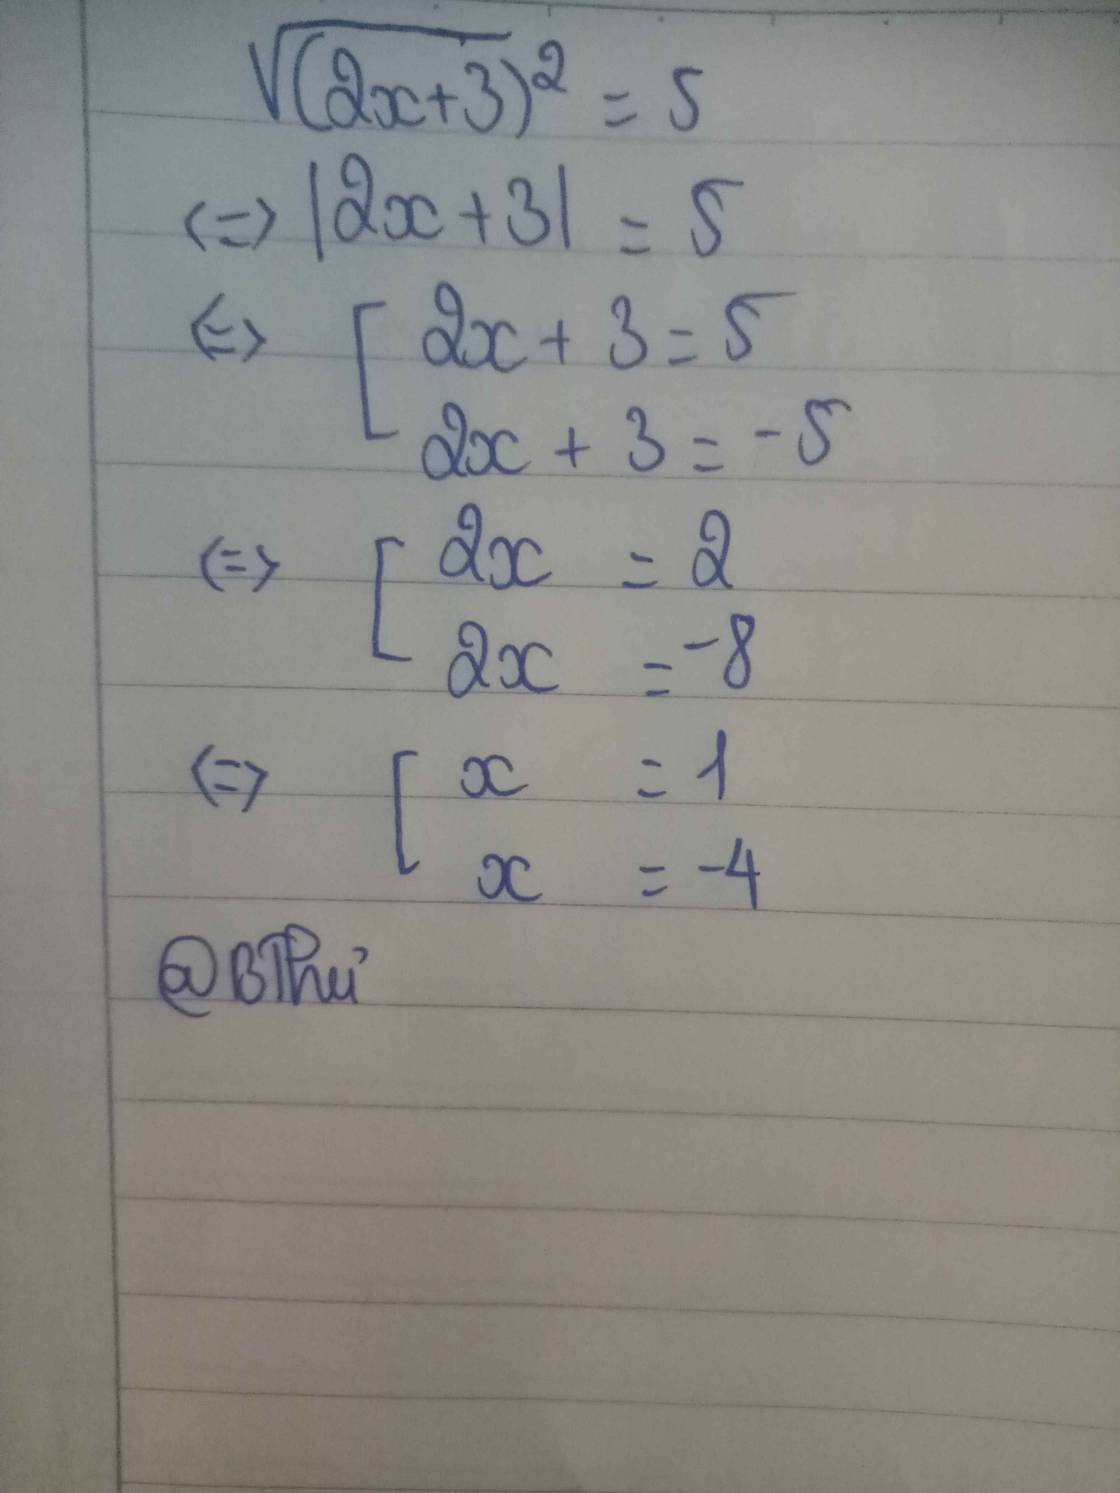 √(2x+3)² = 5
<=> |2x+3| = 5
<=> [ 2x + 3 = 5
2x + 3 = -5
<=> [ 2x = 2
2x = -8
<=> [ x = 1
x = -4
@BThu